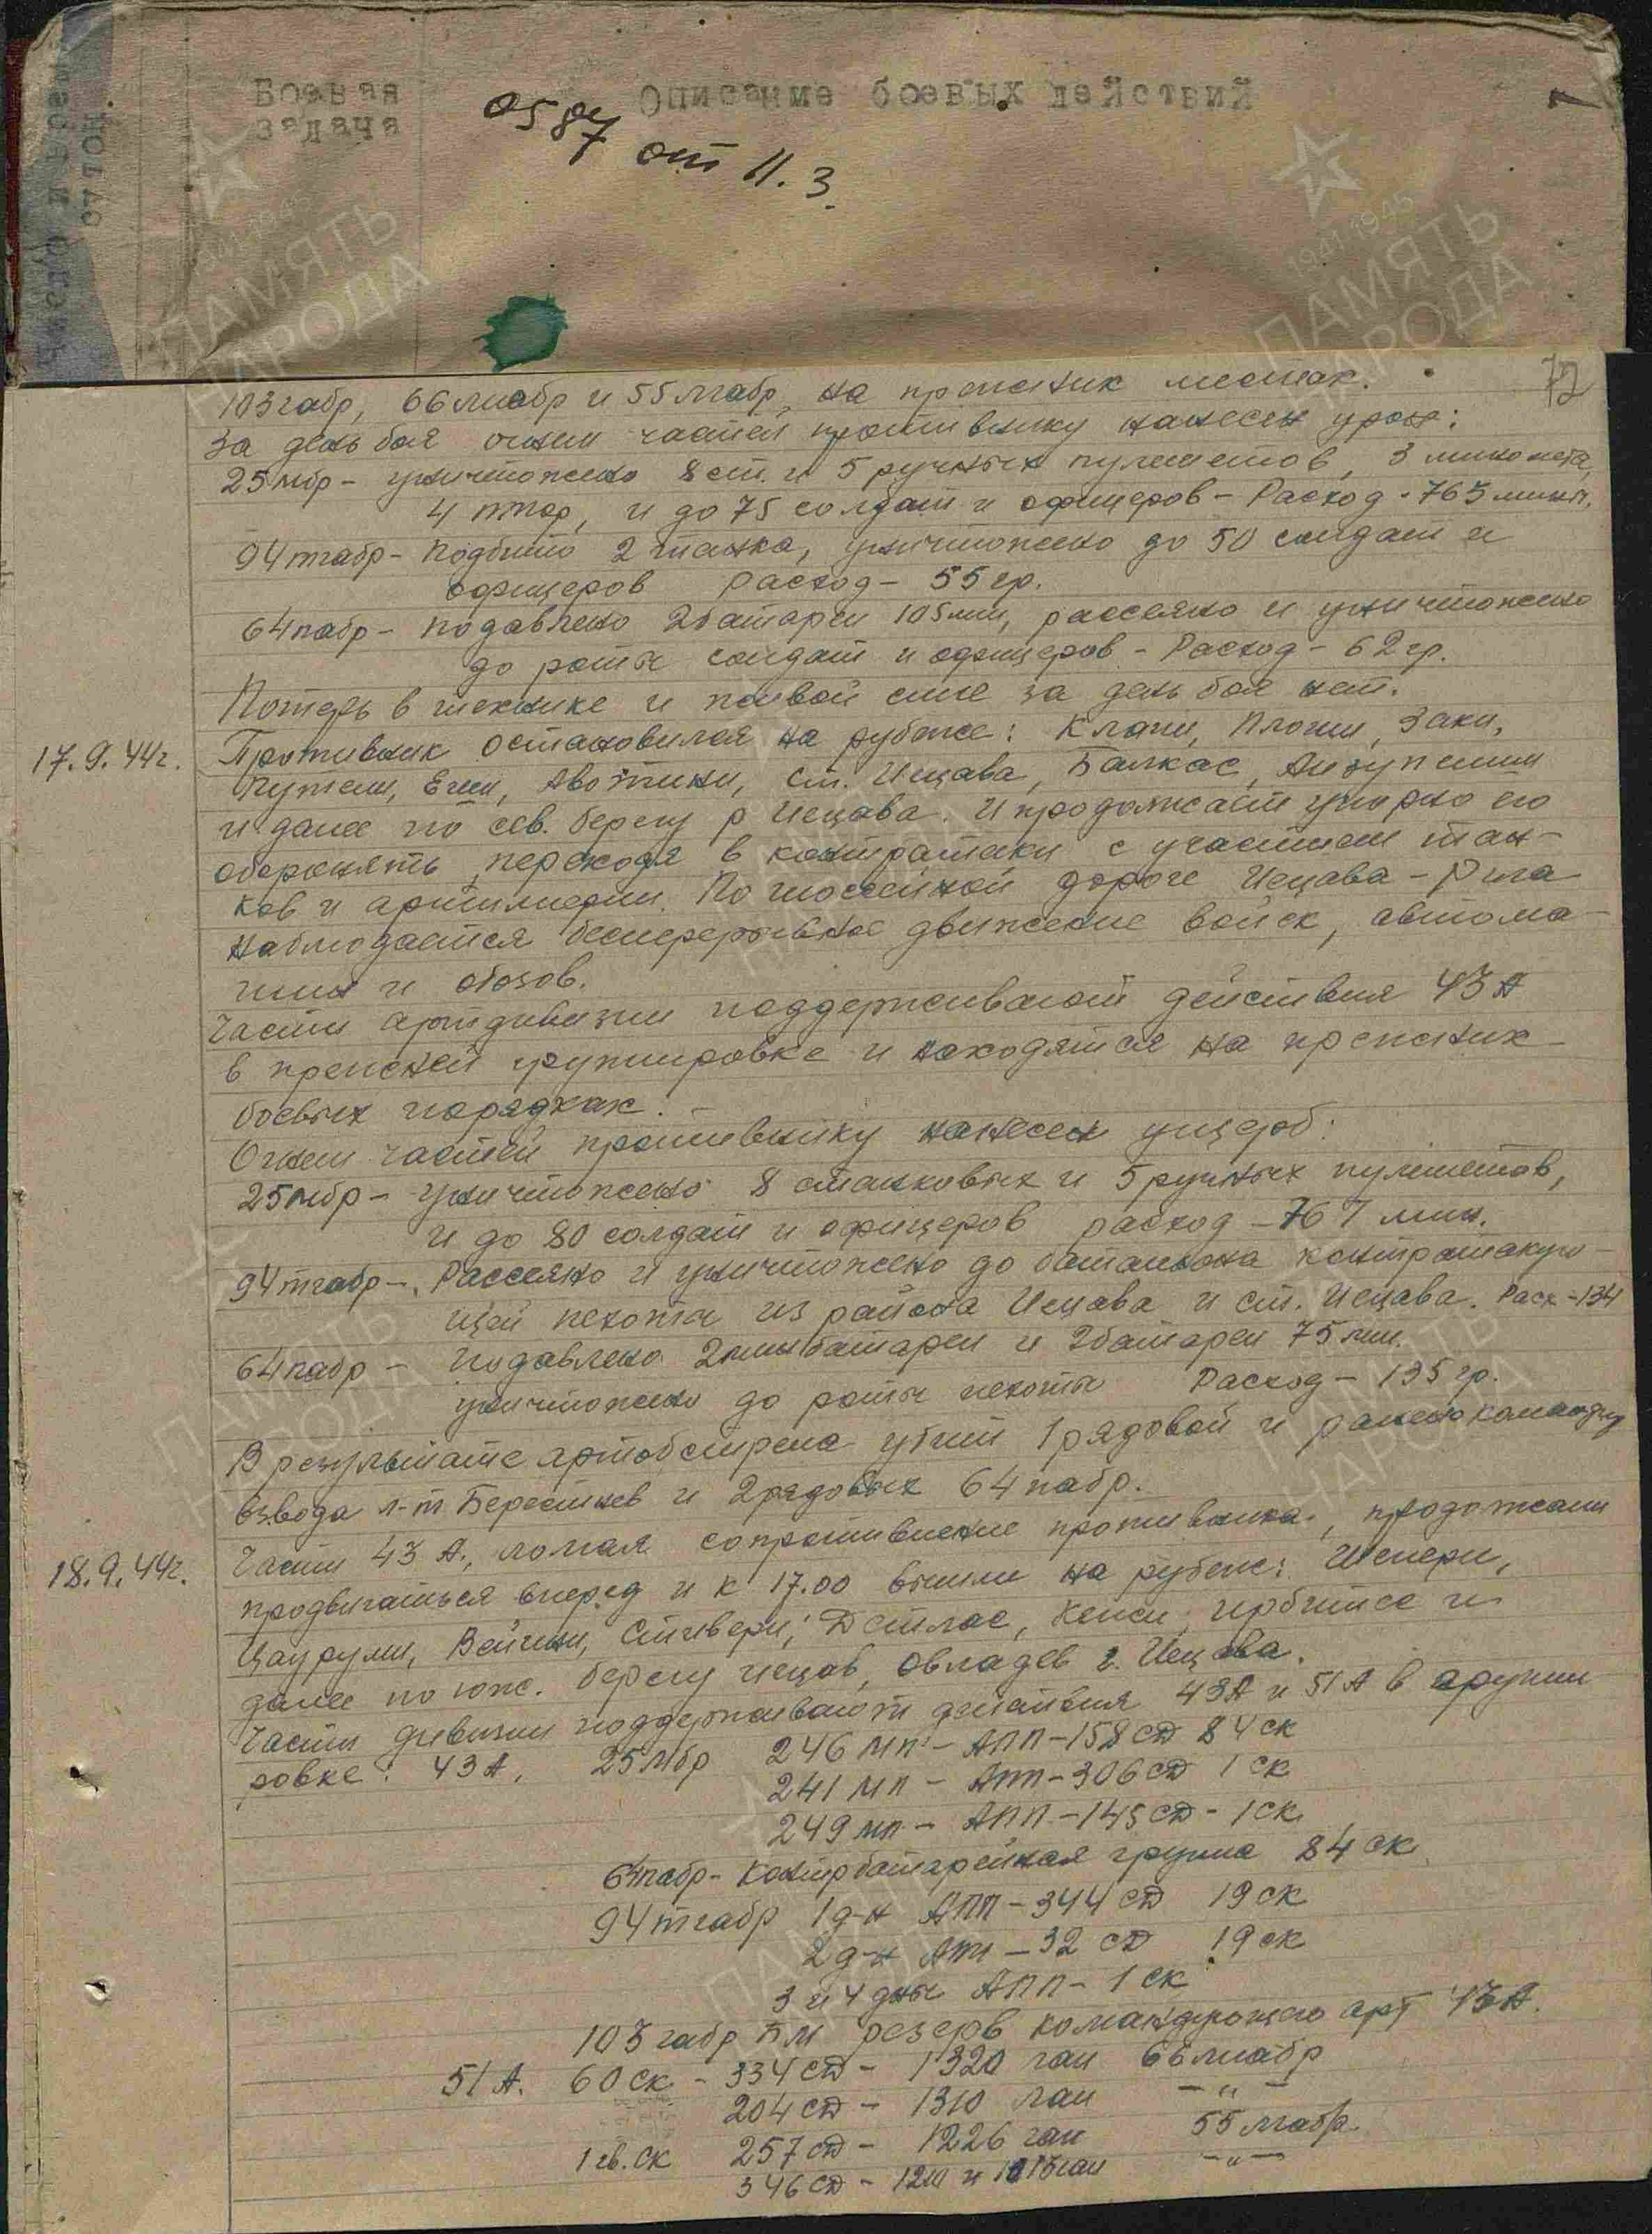 Число и время
суток.
Боевая
задача
Описание боевых действий
0587 от 11.3.
72
103 габр, 66 лабр и 55 лгабр, на прежних местах.
За день боя огнем частей противнику нанесен урон:
25 мбр – уничтожено 8 ст. и 5 ручных пулеметов, 3 миномета,
4 птор, и до 75 солдат и офицеров – Расход - 765 мин.
94 тгабр – Подбито 2 танка, уничтожено до 50 солдат и
офицеров расход – 55 гр.
64 пабр – подавлено 2 батареи 105 мм, рассеяно и уничтожено
до роты солдат и офицеров – Расход – 62 гр.
Потерь в технике и живой силе за день боя нет.
17.9.44г. Противник остановился на рубеже: Клапи, Плоши, Заки,
Путели, Ели, Авотыни, ст. Иецава, Балкас,
и далее по сев. берегу р Иецава. И продолжает упорно его
оборонять, переходя в контратаки с участием тан-
ков и артиллерии. По шоссейной дороге Иецава – Рига
наблюдается беспрерывное движение войск, автома-
шин и обозов.
Части артдивизии поддерживают действия 43 А
в прежней группировке и находятся на прежних
боевых порядках. –
Огнем частей противнику нанесен ущерб:
25 мбр – уничтожено 8 станковых и 5 ручных пулеметов,
и до 80 солдат и офицеров расход – 767 мин.
94 тгабр – Рассеяно и уничтожено до батальона контратакую-
щей пехоты из района Иецава и ст. Иецава. Расх – 134
64 пабр – подавлено 2 минбатареи и 2 батареи 75 мм.
уничтожено до роты пехоты Расход – 135 гр.
В результате артобстрела убит 1 рядовой и ранено командир
взвода л-т Берестнев и 2 рядовых 64 пабр.
18.9.44г. Части 43 А., ломая сопротивление противника, продолжали
продвигаться вперед и к 17.00 вышли на рубеж: Шпери,
Цаурули, Вейгини, Стивери, Детлас, Кенси, Ирбитсе и
далее по юж. берегу Иецав, овладев г. Иецава.
Части дивизии поддерживают действия 43 А и 51 А в группи
ровке: 43 А, 25 мбр 246 мп – АПП – 158 СД 84 ск
241 мп – АПП – 306 СД 1 ск
249 мп – АПП – 145 СД – 1 ск
64 пабр – Контрбатарейная группа 84 ск
94 тгабр 1 д-н АПП – 344 СД 19 ск
2 д-н АПП – 32 СД 19 ск
3 и 4 дны АПП – 1 ск
103 габр БМ резерв командующего арт 43 А.
51 А. 60 ск – 334 СД – 1320 лап 66 лабр
204 СД – 1310 лап – " –
1 гв. ск 257 СД – 1226 гап 55 лгабр.
346 СД – 1211 и гап – " –